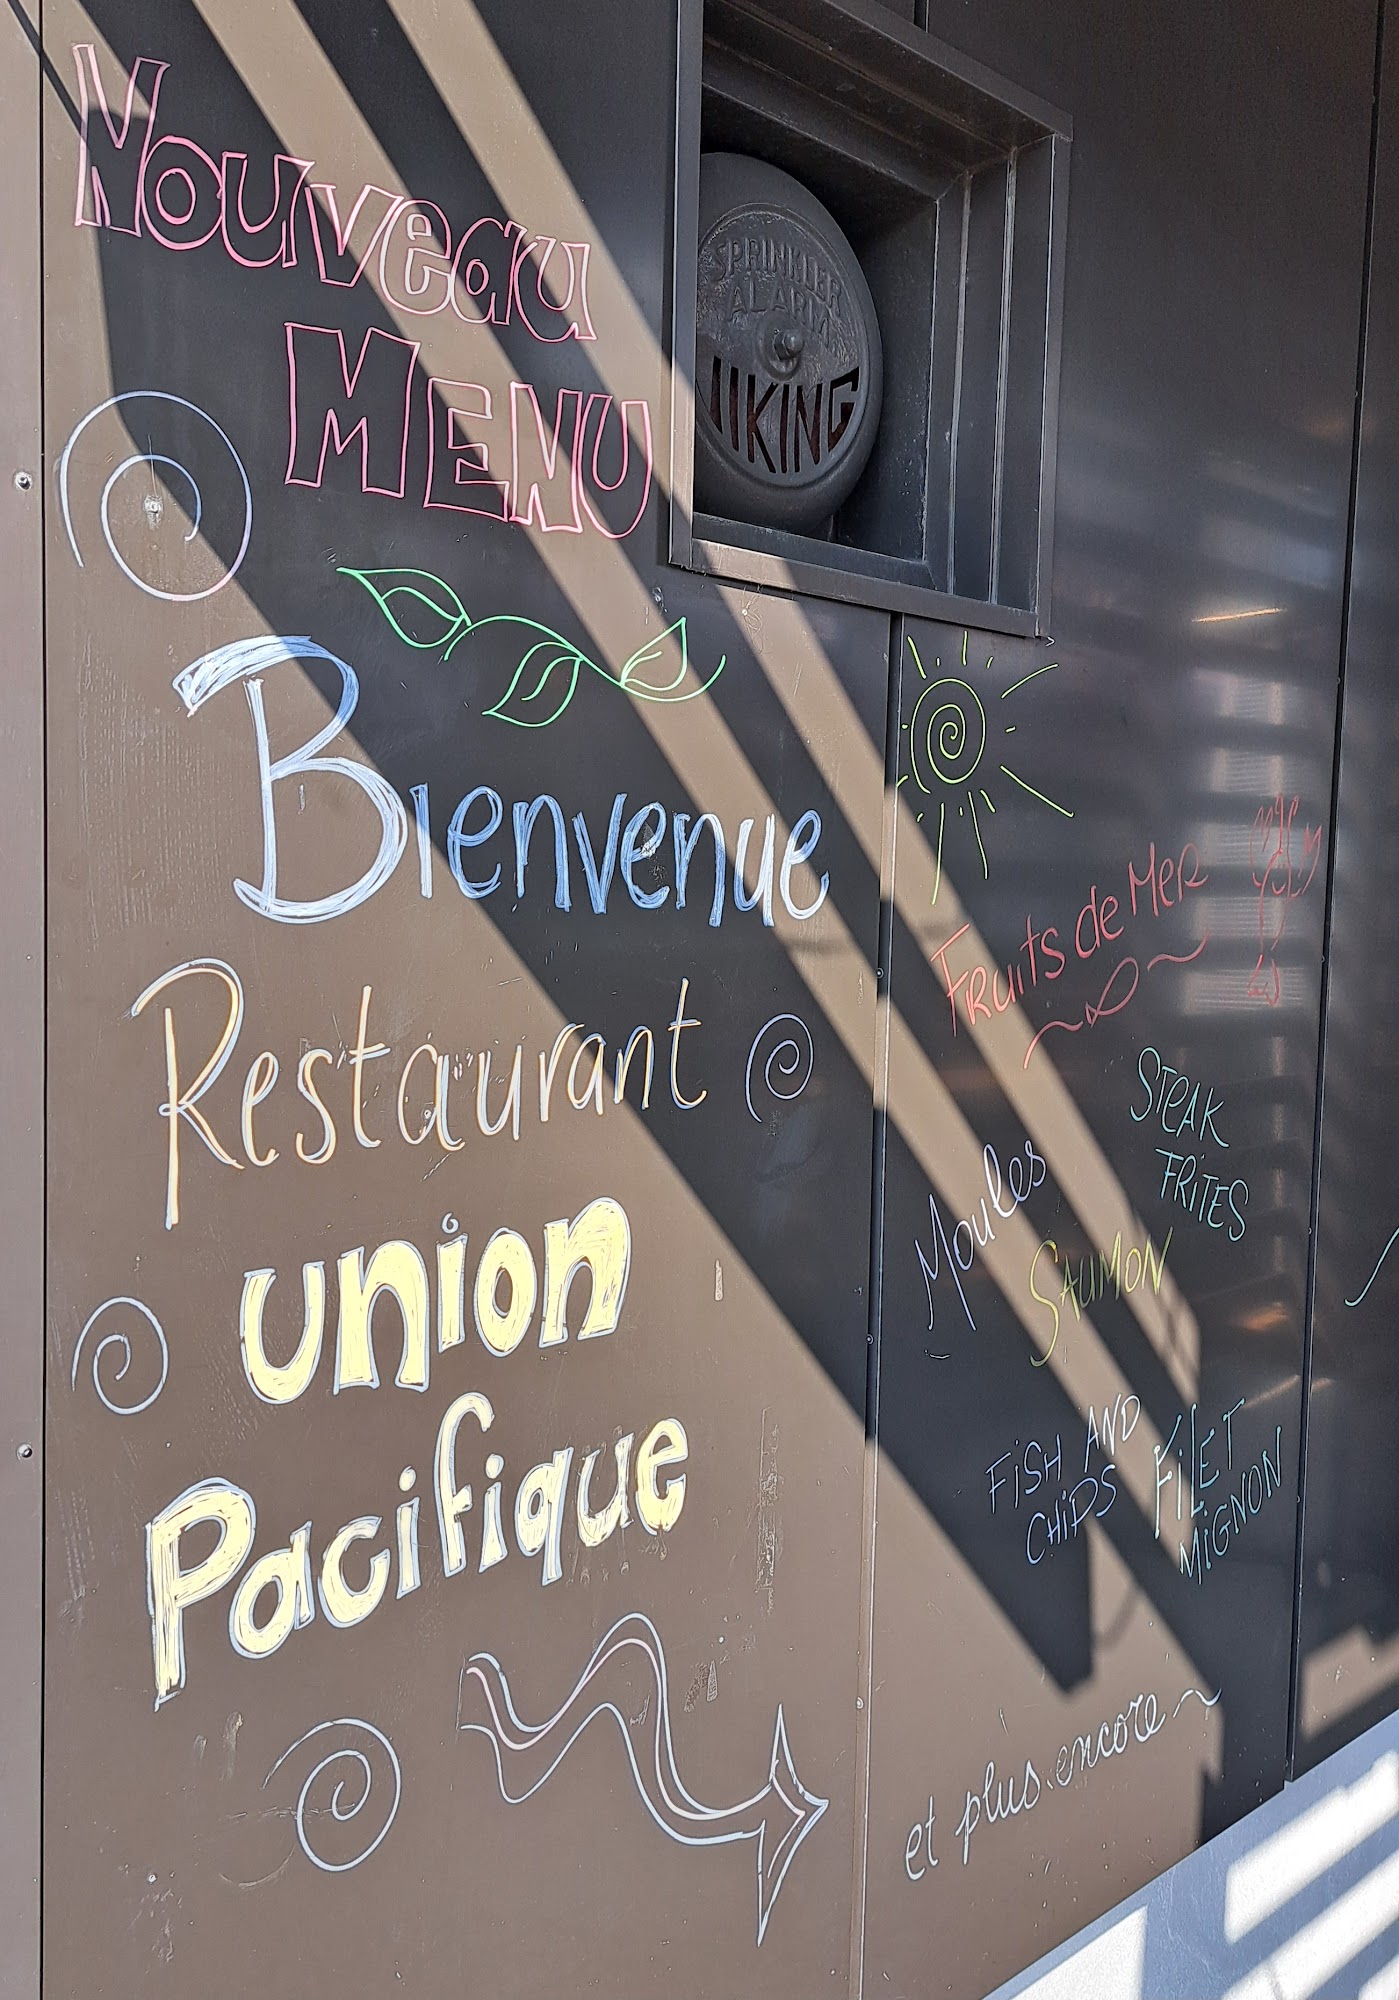 Nouveau
MENU
Bienvenue
Restaurant
union
Pacifique
SPRINKLER
ALARM
VIKING
FRuits de MeR
STEAK
FRiTES
Moules
SAUMON
FiSH AND
CHiPS
FiLET
MiGNON
et plus encore